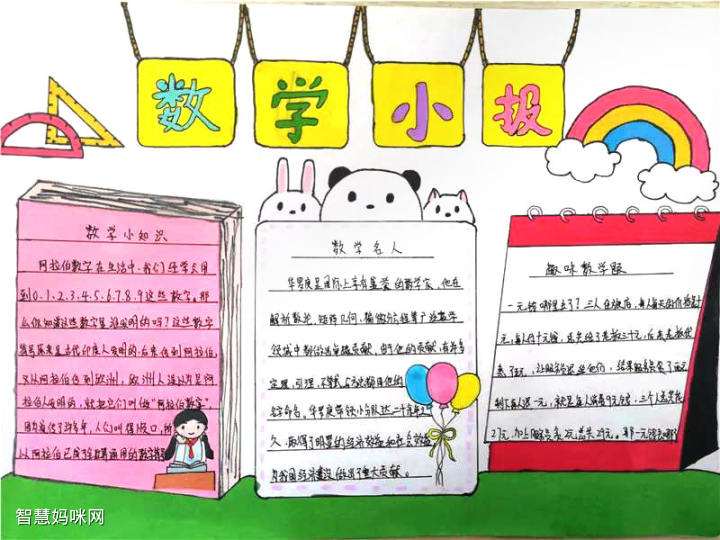 数学小报
数学小知识
阿拉伯数字在生活中,我们经常会用
到0.1.2.3.4.5.6.7.8.9这些数字。那
么你知道这些数字是谁发明的吗?这些数字
符号原来是古代印度人发明的,后来传到阿拉伯,
又从阿拉伯传到欧洲,欧洲人误以为是阿
拉伯人发明的,就把它们叫做"阿拉伯数字",
因为流传了许多年,人们叫得顺口,所
以阿拉伯已成了全世界通用的数字符号
数学名人
华罗庚是国际上享有盛誉的数学家,他在
解析数论,矩阵几何,偏微分方程等广泛数学
领域中都做出卓越贡献,由于他的贡献,有许多
定理,引理,不等式与方法都用他的
名字命名。华罗庚带领小分队达二十
久,取得了明显的经济效益和社会效益
为我国经济建设做出了重大贡献。
趣味数学题
一元钱哪里去了?三人住旅店,每人每天的价格是十
元,每人付十元钱,
元,让服务员
剩下每人退一元,就是每人消费9元钱,三个人总共花
27元,加上服务员2元总共29元。那一元钱去哪了
智慧妈咪网